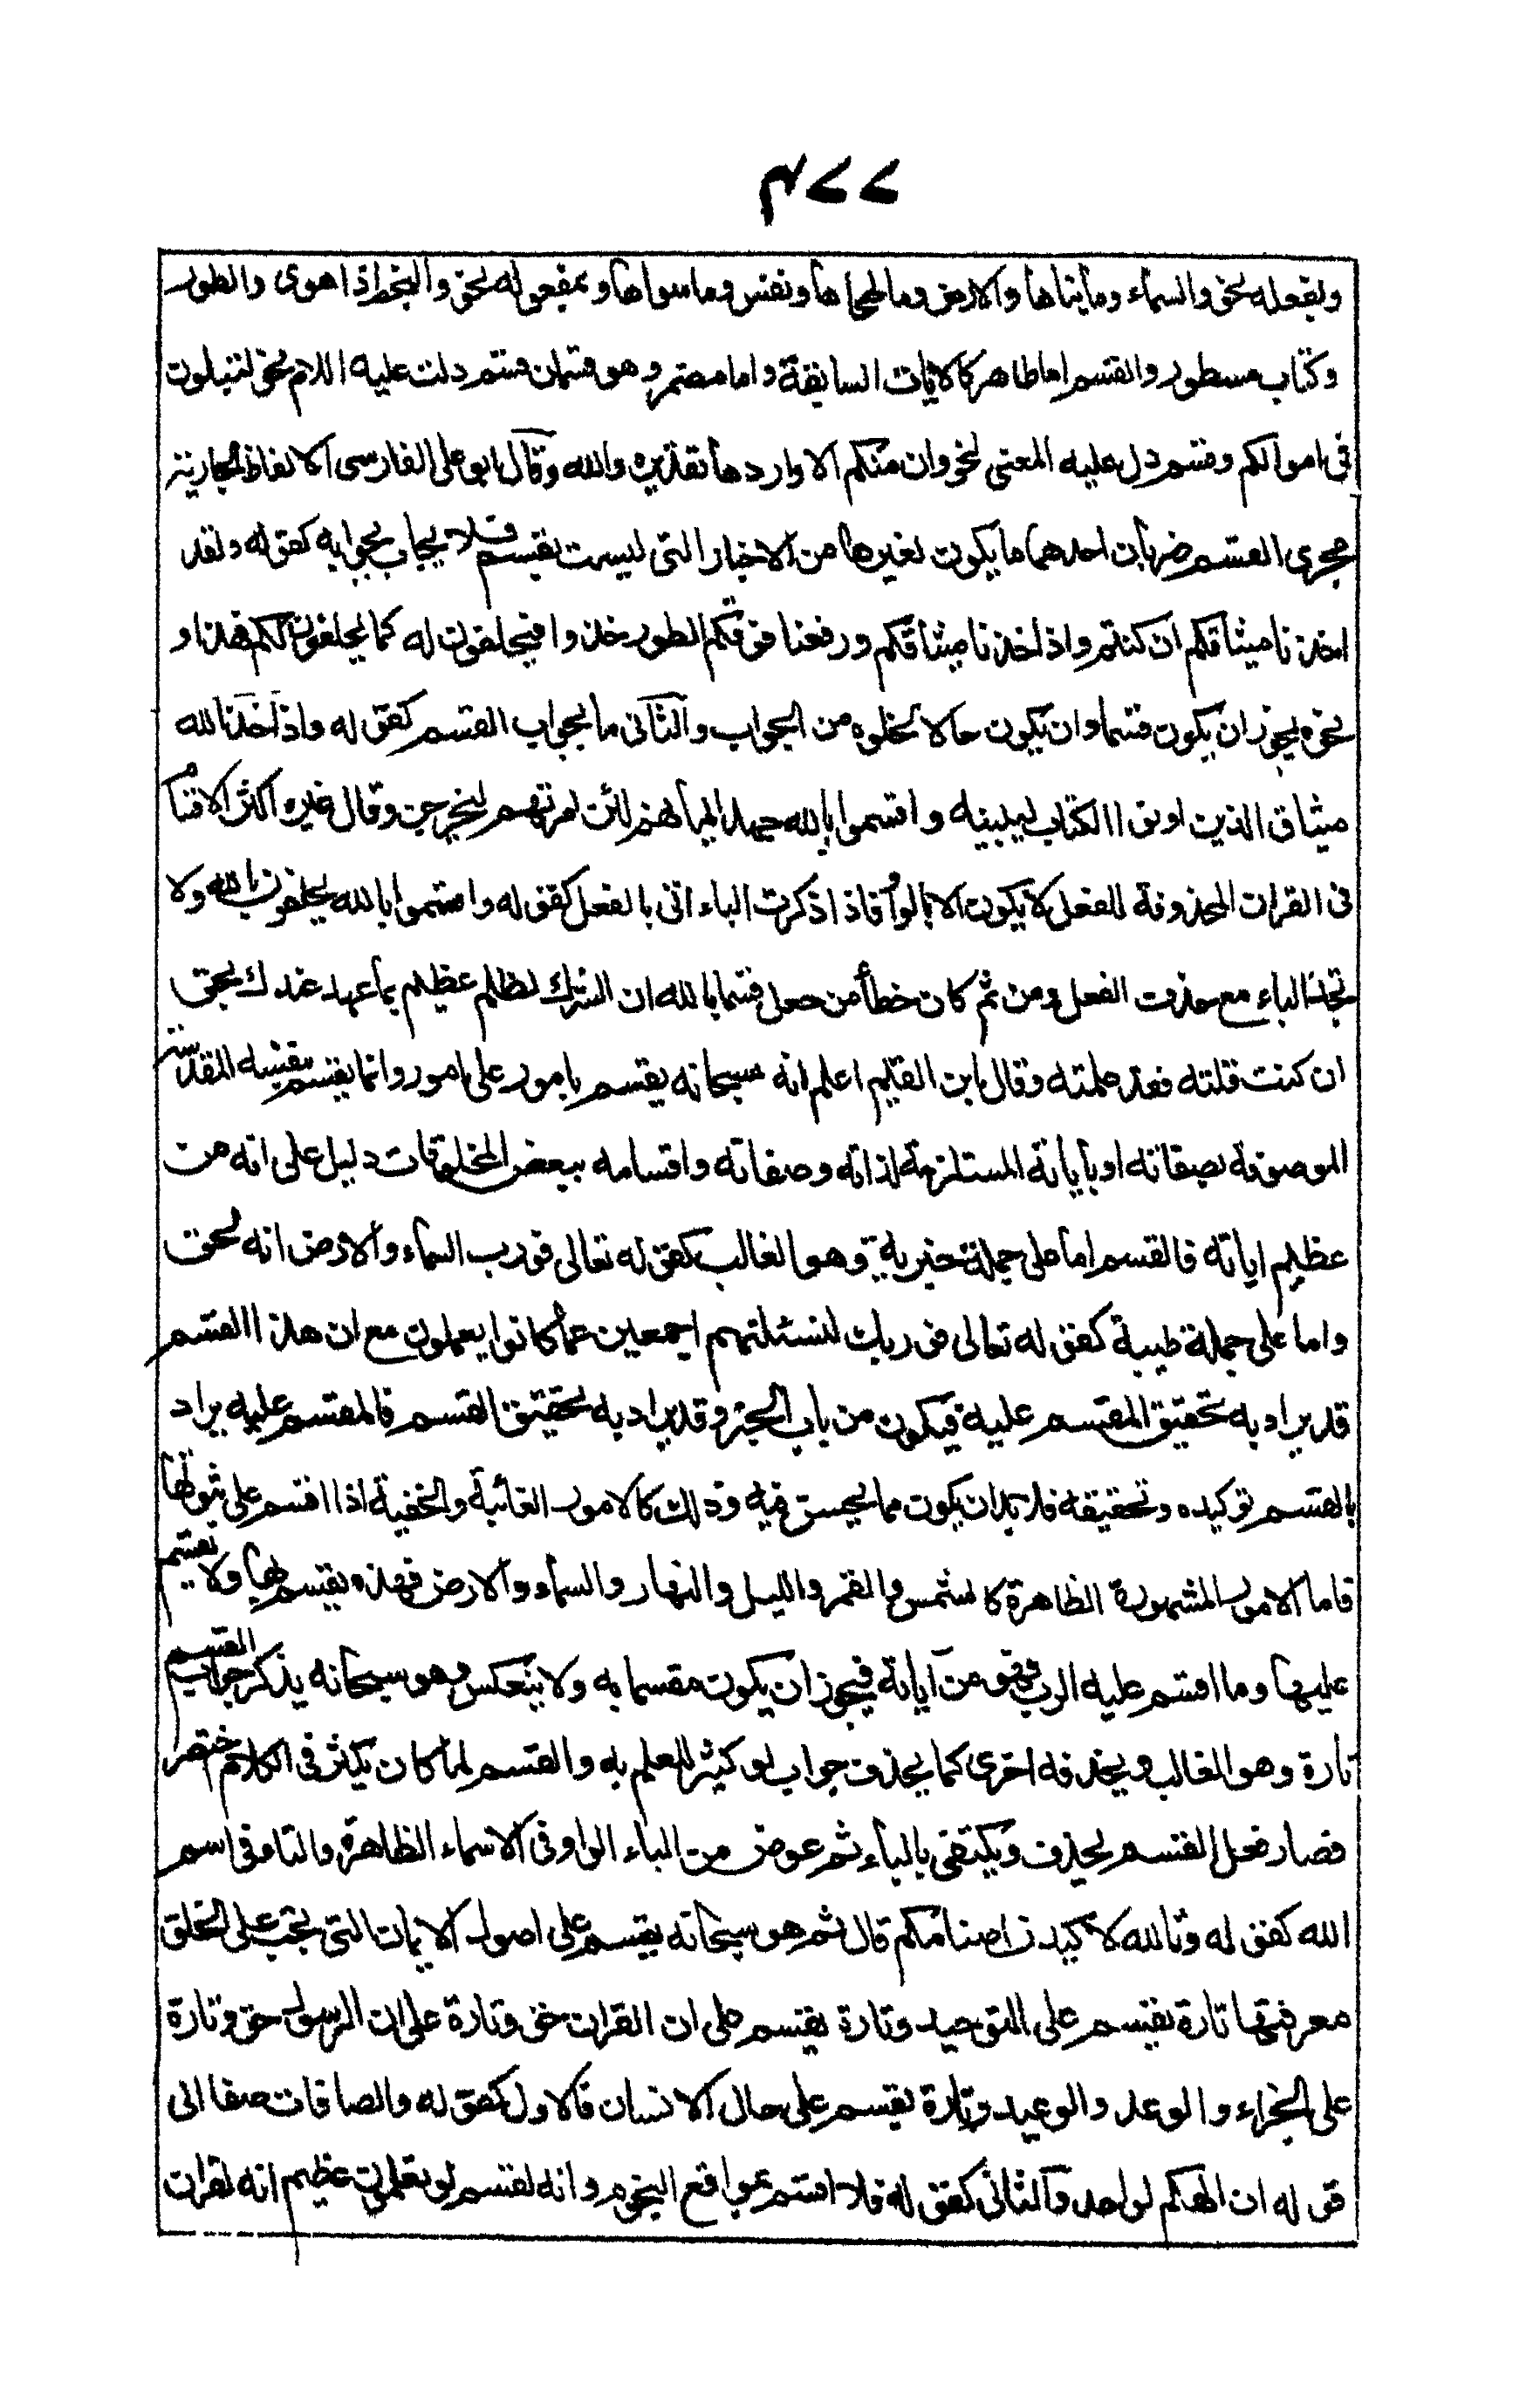 ٤٧٧
وبفعله نحو والسماء وما بناها والارض وما طحاها ونفس وما سواها وبمفعوله نحو والنجم اذا هوى والطور
وكتاب مسطور والقسم اما ظاهر كالايات السابقة واما مضمر وهو قسمان قسم دلت عليه اللام نحو لتبلون
فى اموالكم وقسم دل عليه المعنى نحو وان منكم الا واردها تقديره والله وقال ابو على الفارسى الالفاظ الجارية
مجرى القسم ضربان احدهما ما يكون لغيرها من الاخبار التى ليست بقسم فلا يجاب بجوابه كقوله ولقد
اخذنا ميثاقكم ان كنتم واذ اخذنا ميثاقكم ورفعنا فوقكم الطور خذوا فيحلفون له كما يحلفون لكم فهذا و
نحوه يجوز ان يكون قسما وان يكون حالا لخلوه من الجواب والثانى ما بجواب القسم كقوله واذ اخذ الله
ميثاق الذين اوتوا الكتاب ليبينه واقسموا بالله جهد ايمانهم لئن امرتهم ليخرجن وقال غيره اكثر الاقسام
فى القران المحذوفة الفعل لا يكون الا بالواو فاذا ذكرت الباء اتى بالفعل كقوله واقسموا بالله يحلفون بالله ولا
تجد الباء مع حذف الفعل ومن ثم كان خطأ من جعل قسما بالله ان الشرك لظلم عظيم بما عهد عندك بحق
ان كنت قلته فقد علمته وقال ابن القيم اعلم انه سبحانه يقسم بامور على امور وانما يقسم بنفسه المقدسة
الموصوفة بصفاته او باياته المستلزمة لذاته وصفاته واقسامه ببعض المخلوقات دليل على انه من
عظيم اياته فالقسم اما على جملة خبرية وهو الغالب كقوله تعالى فورب السماء والارض انه لحق
واما على جملة طلبية كقوله تعالى فوربك لنسئلنهم اجمعين عما كانوا يعملون مع ان هذا القسم
قد يراد به تحقيق المقسم عليه فيكون من باب الخبر وقد يراد به تحقيق القسم فالمقسم عليه يراد
بالقسم توكيده وتحقيقه فلا بد ان يكون مما يحسن فيه وذلك كالامور الغائبة والخفية اذا اقسم على ثبوتها
فاما الامور المشهورة الظاهرة كالشمس والقمر والليل والنهار والسماء والارض فهذه يقسم بها ولا يقسم
عليها وما اقسم عليه الرب فهو من اياته فيجوز ان يكون مقسما به ولا ينعكس وهو سبحانه يذكر جواب القسم
تارة وهو الغالب ويحذفه اخرى كما يحذف جواب لو كثير للعلم به والقسم لما كان يكثر فى الكلام اختصر
فصار فعل القسم يحذف ويكتفى بالباء ثم عوض من الباء الواو فى الاسماء الظاهرة والتاء فى اسم
الله كقوله وتالله لاكيدن اصنامكم قال ثم هو سبحانه يقسم على اصول الايمان التى يجب على الخلق
معرفتها تارة يقسم على التوحيد وتارة يقسم على ان القران حق وتارة على ان الرسول حق وتارة
على الجزاء والوعد والوعيد وتارة يقسم على حال الانسان فالاول كقوله والصافات صفا الى
قوله ان الهكم لواحد والثانى كقوله فلا اقسم بمواقع النجوم وانه لقسم لو تعلمون عظيم انه لقران